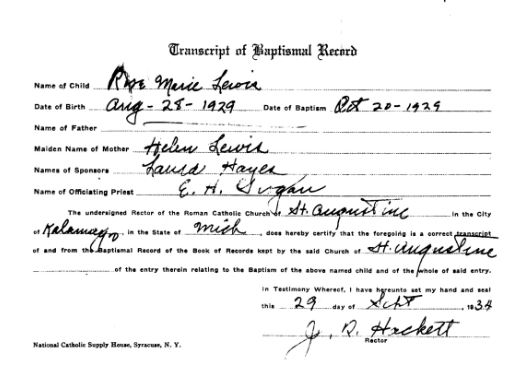 Transcript of Baptismal Record
Name of Child Rose Marie Lewis
Date of Birth Aug - 28 - 1929 Date of Baptism Oct 20 - 1929
Name of Father
Maiden Name of Mother Helen Lewis
Names of Sponsors Laura Hayes
Name of Officiating Priest E. H.
The undersigned Rector of the Roman Catholic Church of St. Augustine in the City
of Kalamazoo, in the State of Mich, does hereby certify that the foregoing is a correct transcript
of and from the Baptismal Record of the Book of Records kept by the said Church of St. Augustine
of the entry therein relating to the Baptism of the above named child and of the whole of said entry.
In Testimony Whereof, I have hereunto set my hand and seal
this 29 day of Sept, 1934
J. R. Hackett
Rector
National Catholic Supply House, Syracuse, N. Y.